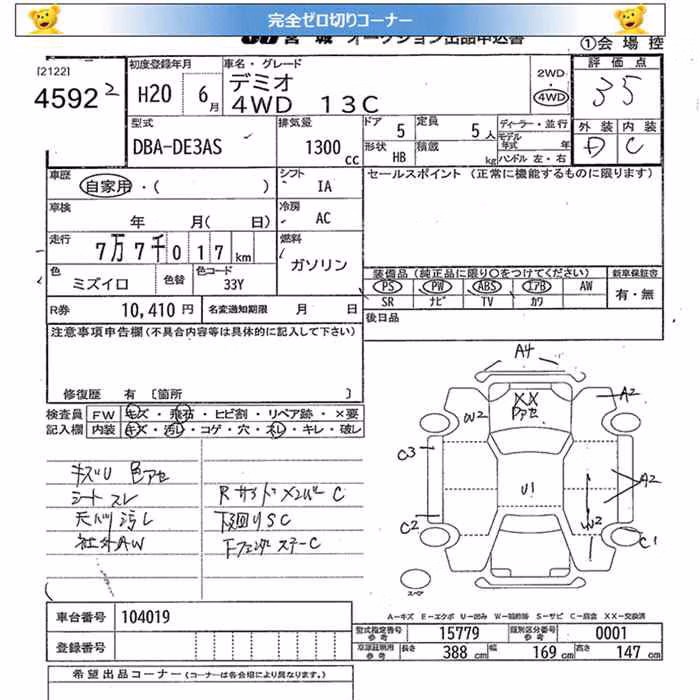 完全ゼロ切りコーナー
JU 宮城 オークション出品申込書
①会場控
[2122]
4592 2
初度登録年月
H20 6月
車名・グレード
デミオ
4WD 13C
2WD
4WD
評価点
3.5
外装 内装
D C
型式
DBA-DE3AS
排気量
1300cc
ドア 5
定員 5人
ディーラー・並行
モデル年式 年
形状 HB
積載 kg
ハンドル 左・右
車歴
自家用・( )
シフト IA
セールスポイント (正常に機能するものに限ります)
車検 年 月( 日)
冷房 AC
走行 7万7千017km
燃料
ガソリン
色 ミズイロ
色替
色コード 33Y
装備品(純正品に限り〇をつけてください)
新車保証書
PS PW ABS エアB AW
有・無
SR ナビ TV カワ
R券 10,410円
名変通知期限 月 / 日
後日品
注意事項申告欄(不具合内容等は具体的に記入して下さい)
修復歴 有 [箇所 ]
検査員 FW キズ・飛石・ヒビ割・リペア跡・×要
記入欄 内装 キズ・汚レ・コゲ・穴・スレ・キレ・破レ
キズU 色アセ
シート スレ
天バリ 汚レ
社外AW
Rサイドメンバー C
下廻りSC
A4
XX
アセ
W2
A2
C3
U1
A2
W2
C2
C1
スペア
A-キズ E-エクボ U-凹み W-補修跡 S-サビ C-腐食 XX-交換済
車台番号 104019
型式指定番号 参考 15779
類別区分番号 参考 0001
登録番号
車庫証明用 参考 長さ 388cm 幅 169cm 高さ 147cm
希望出品コーナー(コーナーは各会場により異なります。)